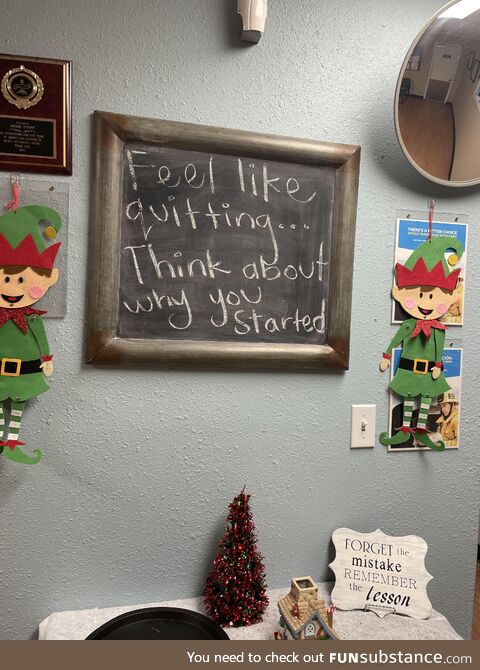 Feel like
quitting...
Think about
why you
started
THERE'S A BETTER CHOICE
FORGET the
mistake
REMEMBER
the lesson
You need to check out FUNsubstance.com